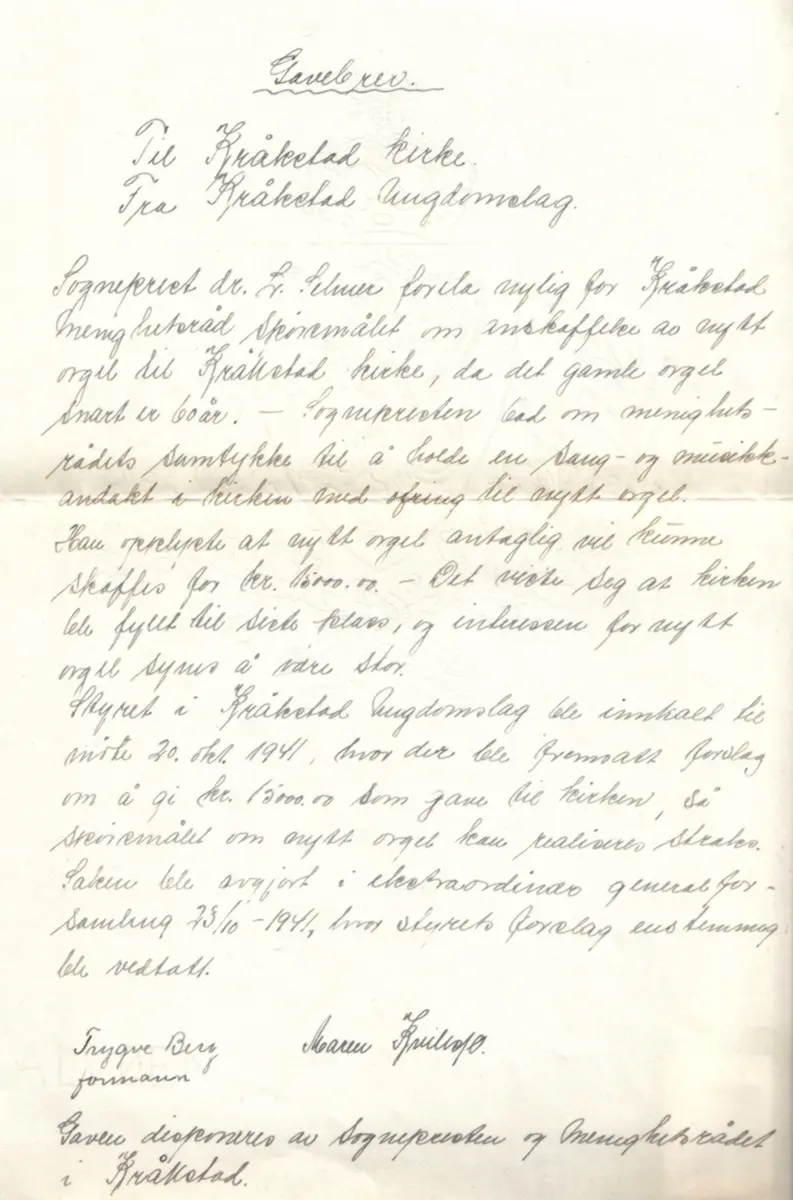 Gavebrev.
Til Kråkstad kirke.
Fra Kråkstad Ungdomslag.
Sogneprest dr. Selmer forela nylig for Kråkstad
Menighetsråd spørsmålet om anskaffelse av nytt
orgel til Kråkstad kirke, da det gamle orgel
snart er 60 år. — Sognepresten bad om menighets-
rådets samtykke til å holde en sang- og musikk-
andakt i kirken med ofring til nytt orgel.
Han opplyste at nytt orgel antaglig vil kunne
skaffes for kr. 15000.00. — Det viste seg at kirken
ble fyllt til siste plass, og interessen for nytt
orgel synes å være stor.
Styret i Kråkstad Ungdomslag ble innkalt til
møte 20. okt. 1941, hvor der ble fremsatt forslag
om å gi kr. 15000.00 som gave til kirken, så
spørsmålet om nytt orgel kan realiseres straks.
Saken ble avgjort i ekstraordinær generalfor-
samling 23/10-1941, hvor styrets forslag enstemmig
ble vedtatt.
Trygve Berg Maren
formann
Gaven disponeres av Sognepresten og Menighetsrådet
i Kråkstad.